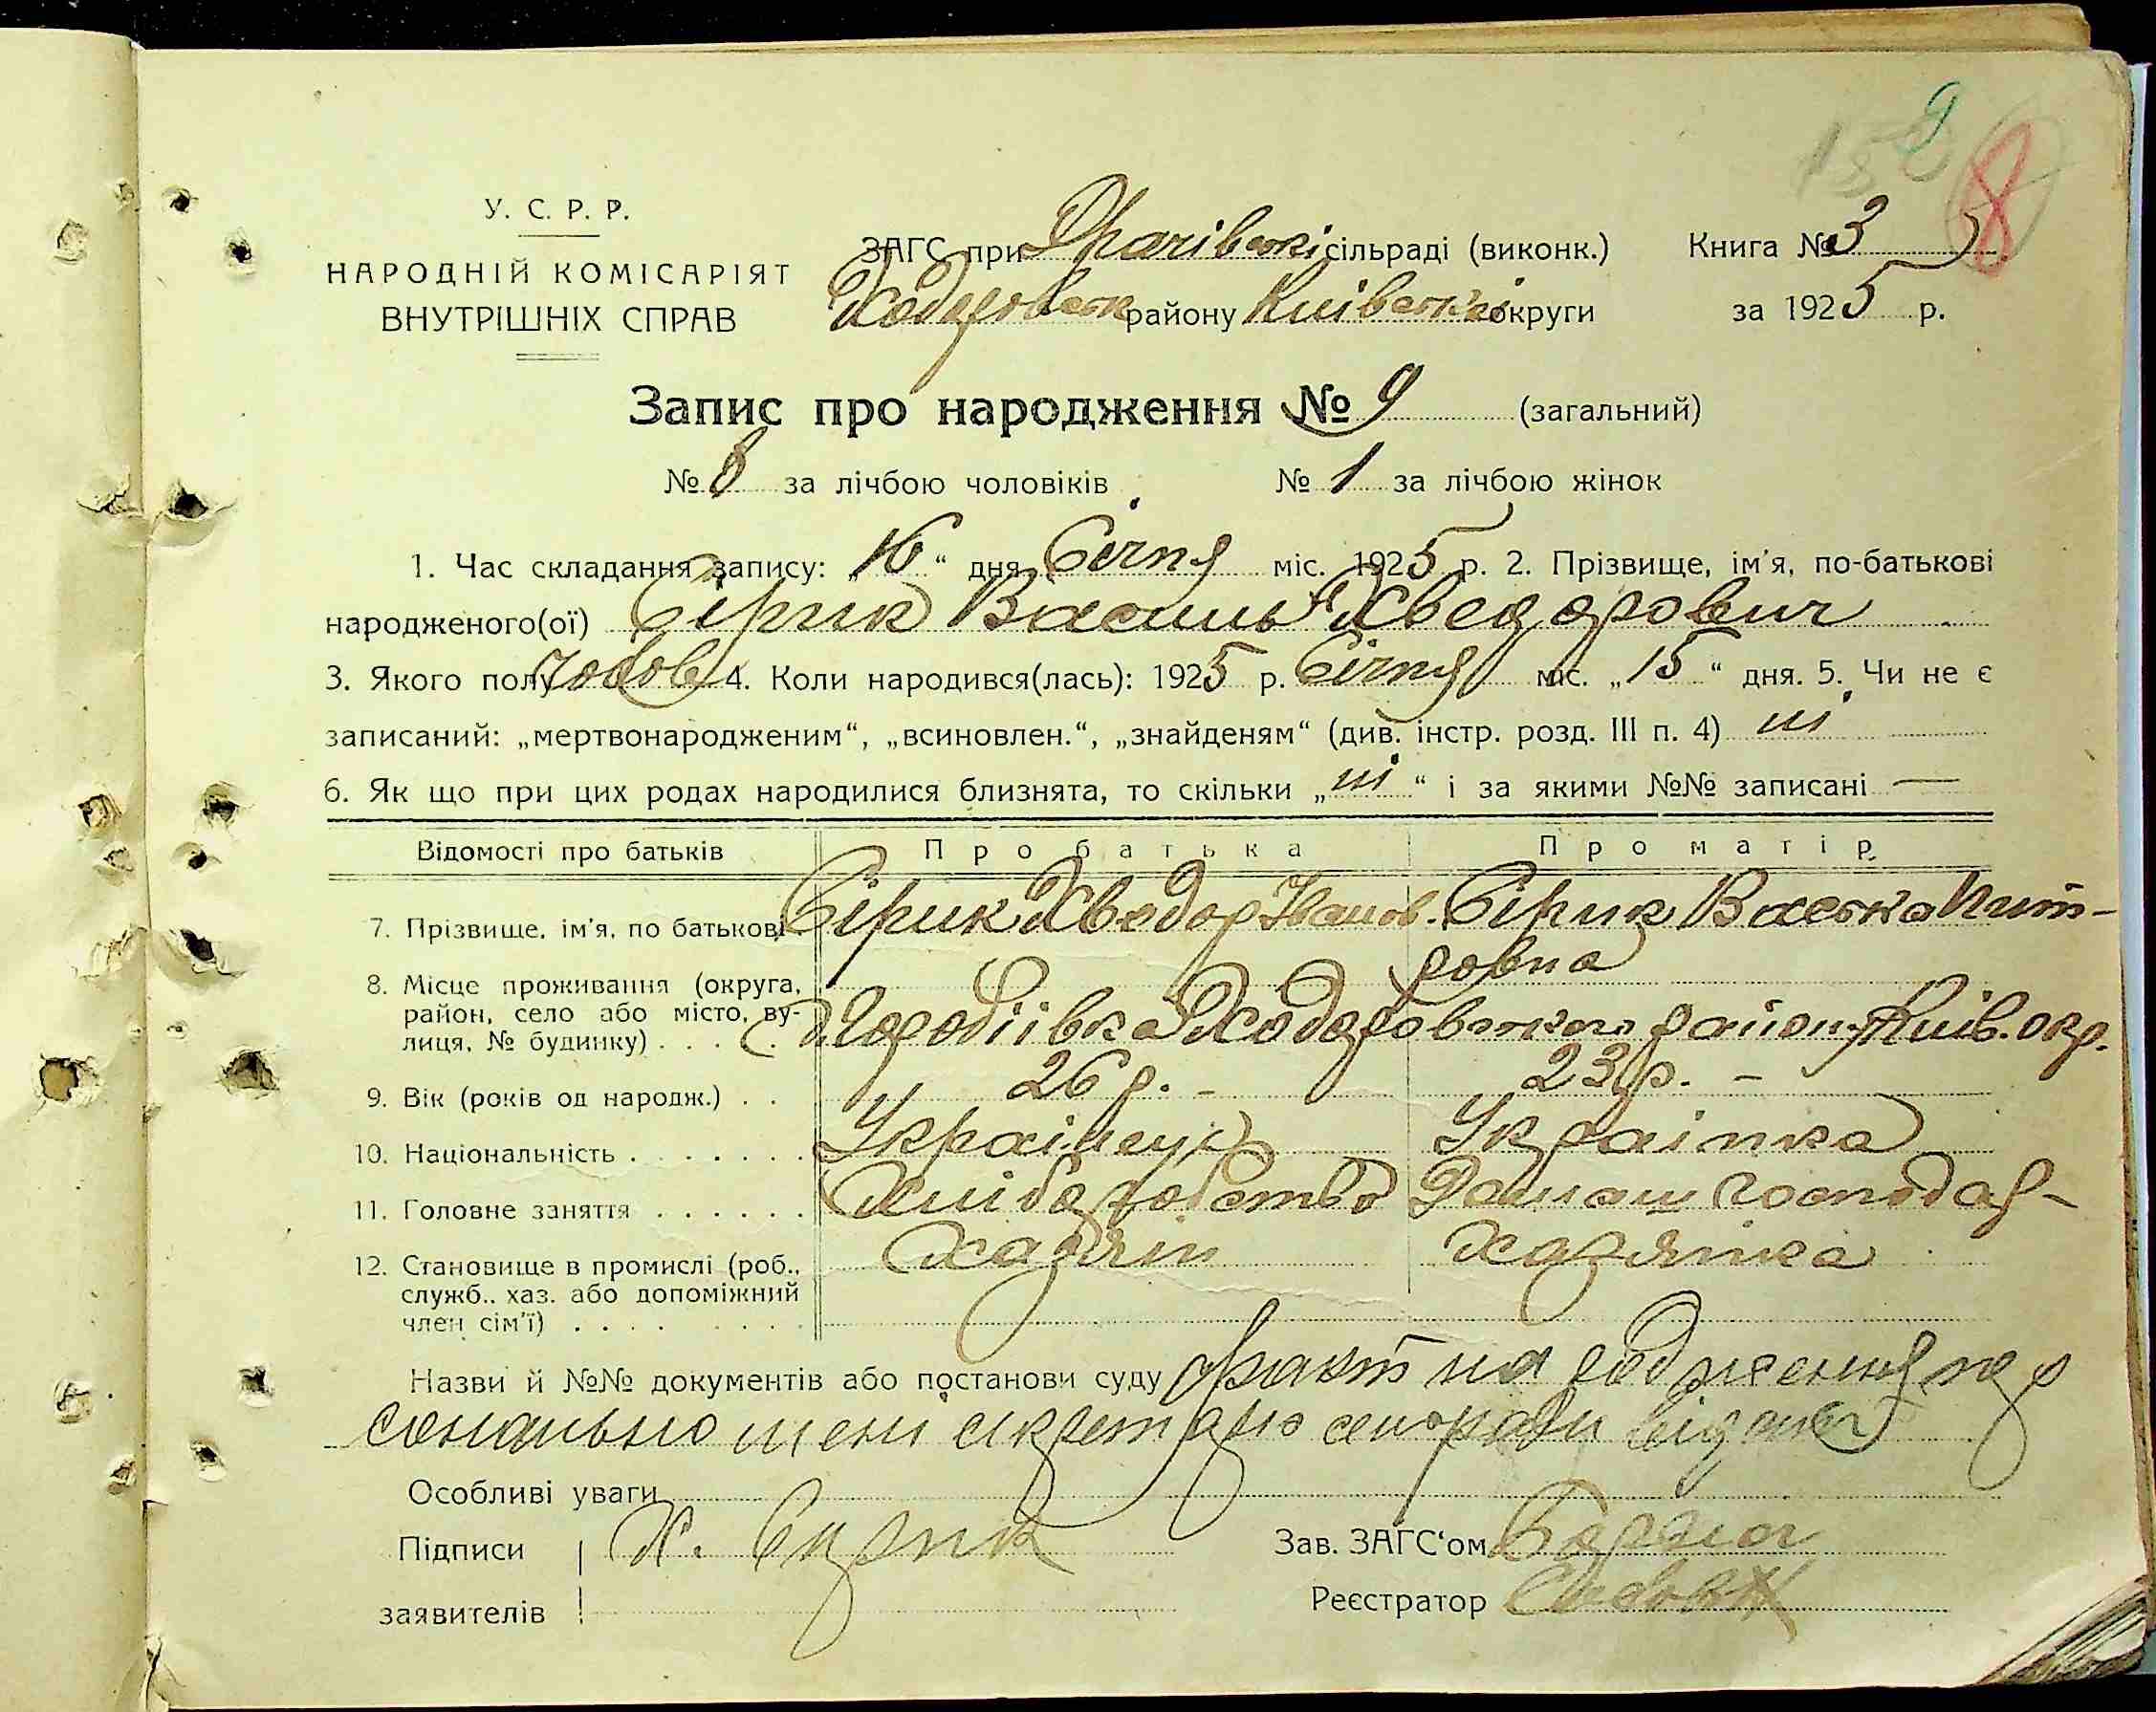 9
8
У. С. Р. Р.
НАРОДНІЙ КОМІСАРІЯТ
ВНУТРІШНІХ СПРАВ
ЗАГС при Драчівські сільраді (виконк.) Книга № 3
Ходоровськ району Київської округи за 1925 р.
Запис про народження № 9 (загальний)
№ 8 за лічбою чоловіків № 1 за лічбою жінок
1. Час складання запису: „16“ дня Січня міс. 1925 р. 2. Прізвище, ім'я, по-батькові
народженого(ої) Сірик Василь Хведорович
3. Якого полу чолов 4. Коли народився(лась): 1925 р. Січня міс. „15“ дня. 5. Чи не є
записаний: „мертвонародженим“, „всиновлен.“, „знайденям“ (див. інстр. розд. III п. 4) ні
6. Як що при цих родах народилися близнята, то скільки „ні“ і за якими №№ записані —
Відомості про батьків Про батька Про матір
7. Прізвище, ім'я, по батькові. Сірик Хведор Іванов. Сірик Васька Пит-
ровна
8. Місце проживання (округа,
район, село або місто, ву-
лиця, № будинку) . . . С. Городіівка Ходоровського району Київ. окр.
9. Вік (років од народж.) . . 26 р. – 23 р. –
10. Національність . . . . . . . Українець Українка
11. Головне заняття . . . . . . Хліборобство Домаш господар-
12. Становище в промислі (роб., Хазяїн Хазяйка
служб., хаз. або допоміжний
член сім'ї) . . . .
Назви й №№ документів або постанови суду факт на родження пер
сонально мені сикретарю сельради
Особливі уваги
Підписи Х. Сирик Зав. ЗАГС'ом
заявителів Реєстратор